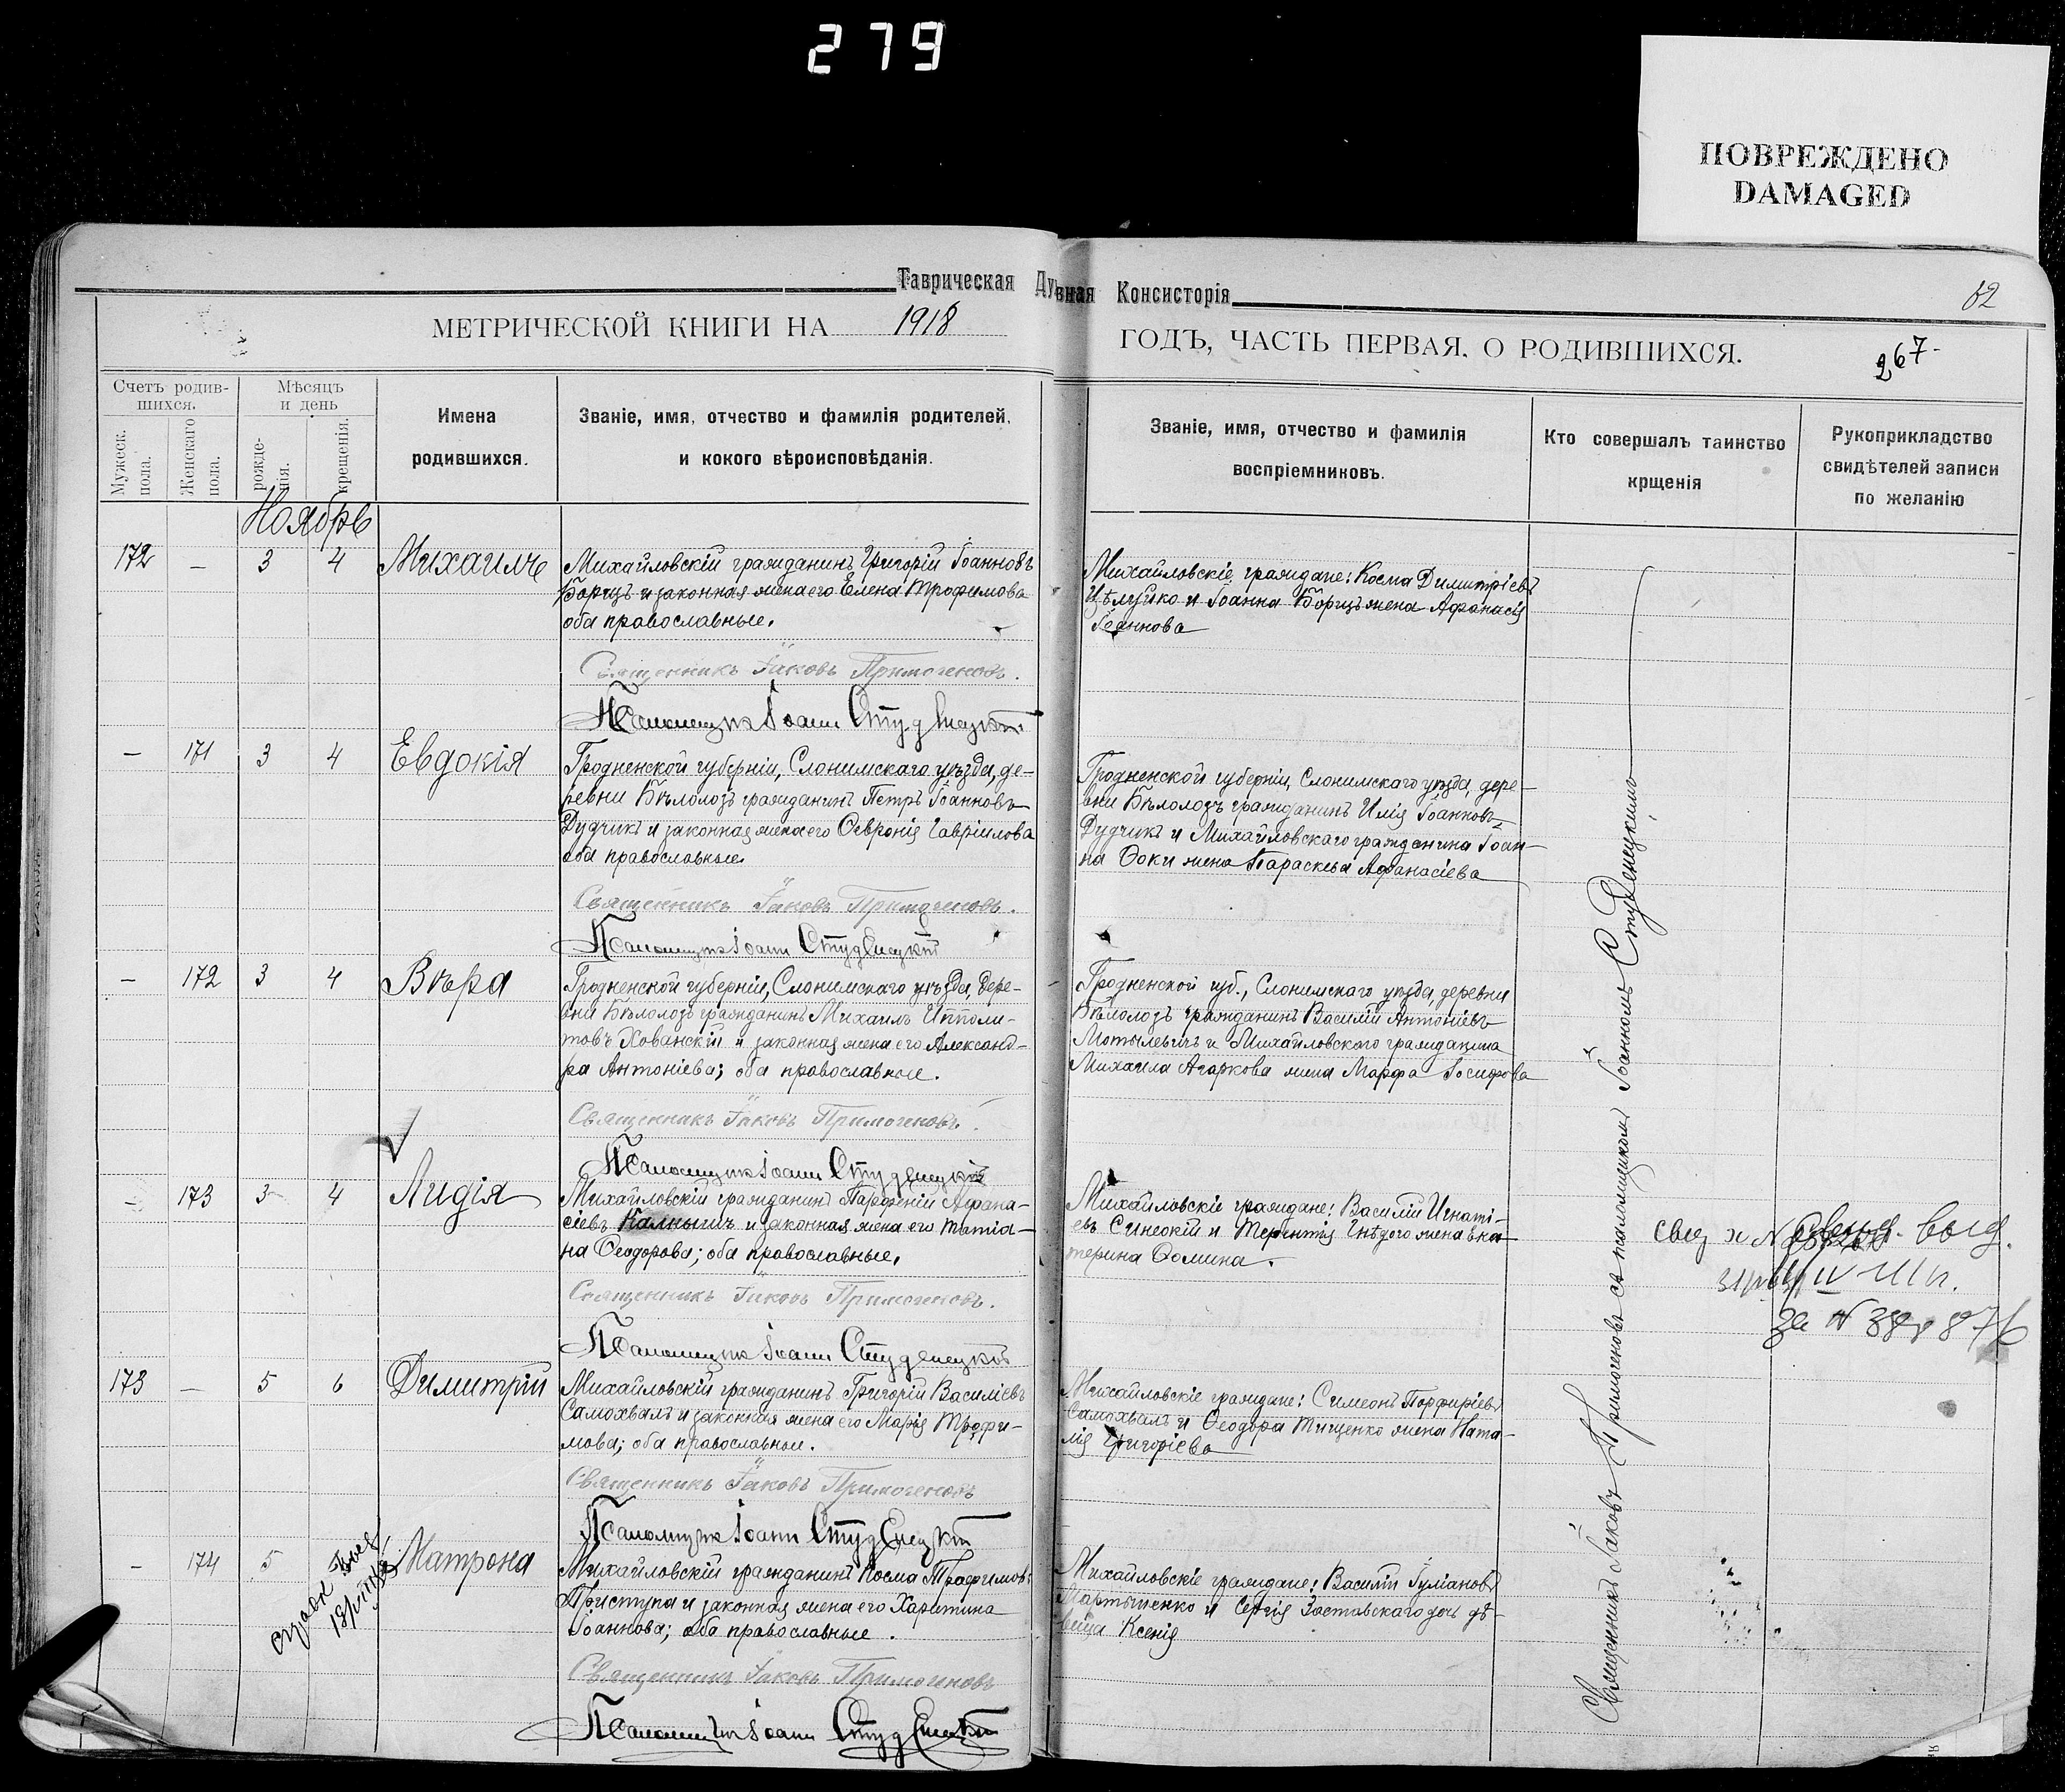 279
ПОВРЕЖДЕНО
DAMAGED
Таврическая Духвная Консисторія
62
МЕТРИЧЕСКОЙ КНИГИ НА 1918 ГОДЪ, ЧАСТЬ ПЕРВАЯ, О РОДИВШИХСЯ.
267
Счетъ родив-
шихся.
Мужеск.
пола.
Женскаго
пола.
Мѣсяцъ
и день
рожде-
нія.
крещенія.
Имена
родившихся.
Званіе, имя, отчество и фамилія родителей,
и кокого вѣроисповѣданія.
Званіе, имя, отчество и фамилія
воспріемниковъ.
Кто совершалъ таинство
крщенія
Рукоприкладство
свидѣтелей записи
по желанію
Ноябрь
172 — 3 4 Михаилъ
Михайловскій гражданинъ Григорій Іоанновъ
Борецъ и законная жена его Елена Трофимова
оба православные.
Священникъ Іаковъ Примогеновъ.
Псаломщикъ Іоаннъ Студенецкій
Михайловскіе граждане: Косма Димитріевъ
Цѣлуйко и Іоанна Борецъ жена Афанасія
Іоаннова
— 171 3 4 Евдокія
Гродненской губерніи, Слонимскаго уѣзда, де-
ревни Бѣлолозъ гражданинъ Петръ Іоанновъ
Дудчикъ и законная жена его Ѳевронія Гавріилова
оба православные
Священникъ Іаковъ Примогеновъ.
Псаломщикъ Іоаннъ Студенецкій
Гродненской губерніи, Слонимскаго уѣзда, дере-
вни Бѣлолозъ гражданинъ Илія Іоанновъ
Дудчикъ и Михайловскаго гражданина Іоан-
на Фоки жена Параскева Афанасіева
— 172 3 4 Вѣра
Гродненской губерніи, Слонимскаго уѣзда, дере-
вни Бѣлолозъ гражданинъ Михаилъ Ипполи-
товъ Хованскій и законная жена его Александ-
ра Антоніева; оба православные.
Священникъ Іаковъ Примогеновъ.
Псаломщикъ Іоаннъ Студенецкій
Гродненской губ., Слонимскаго уѣзда, деревни
Бѣлолозъ гражданинъ Василій Антоніевъ
Мотылевичъ и Михайловского гражданина
Михаила Агаркова жена Марфа Іосифова
— 173 3 4 Лидія
Михайловскій гражданинъ Парфеній Афана-
сіевъ Калнышъ и законная жена его Татіа-
на Ѳеодорова; оба православные.
Священникъ Іаковъ Примогеновъ.
Псаломщикъ Іоаннъ Студенецкій
Михайловскіе граждане: Василій Игнаті-
евъ Синеокій и Терентія Гнѣдого жена Ека-
терина Ѳомина.
выд.
за №
173 — 5 6 Димитрій
Михайловскій гражданинъ Григорій Василіевъ
Самохвалъ и законная жена его Марія Трофи-
мова; оба православные.
Священникъ Іаковъ Примогеновъ
Псаломщикъ Іоаннъ Студенецкій
Михайловскіе граждане: Симеонъ Порфиріевъ
Самохвалъ и Ѳеодора Тищенко жена Ната-
лія Григоріева
— 174 5 Матрона
Михайловскій гражданинъ Косма Трофимовъ
Приступа и законная жена его Харитина
Іоаннова; оба православные.
Священникъ Іаковъ Примогеновъ
Псаломщикъ Іоаннъ Студенецкій
Михайловскіе граждане: Василій Іуліановъ
Мартыненко и Сергія Заставскаго дочь дѣ-
вица Ксенія
Священникъ Іаковъ Примогеновъ съ псаломщикомъ Іоанномъ Студенецкимъ